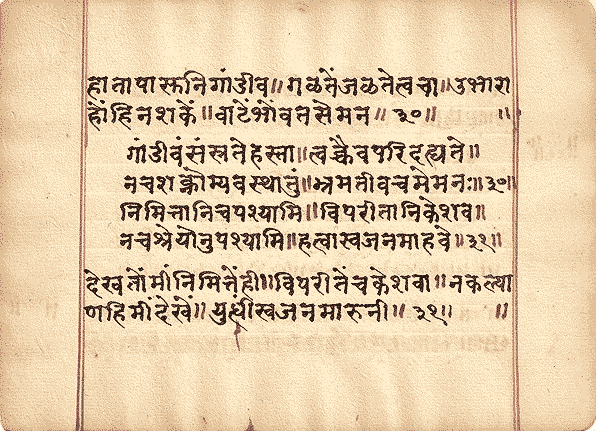 हातापास्तनिगांडीव॥गळतेंजळतेत्वचा॥उभारा
होंहिनशकें॥वाटेभोंवतसेमन॥३०॥ ॥
गांडीवंसंस्त्रतेहस्ता॥त्वक्चैवपरिदह्यते॥
नचशक्नोम्यवस्थातुं॥भ्रमतीवचमेमनः॥३०॥
निमित्तानिचपश्यामि॥विपरीतानिकेशव॥
नचश्रेयोनुपश्यामि॥हत्वास्वजनमाहवे॥३१॥
देखतोंमींनिमित्तेंही॥विपरीतेंचकेशवा॥नकल्या
णहिमींदेखें॥युद्धींस्वजनमारुनी॥३१॥ ॥